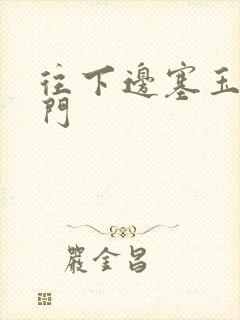 往下邊塞玉
門
嚴金昌